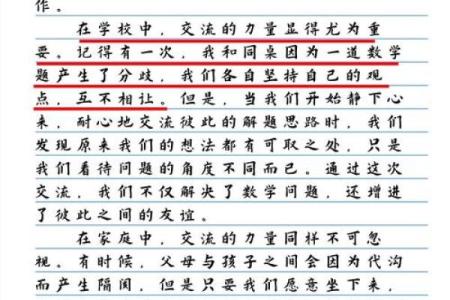 作。
在学校中，交流的力量显得尤为重
要。记得有一次，我和同桌因为一道数学
题产生了分歧，我们各自坚持自己的观
点，互不相让。但是，当我们开始静下心
来，耐心地交流彼此的解题思路时，我们
发现原来我们的想法都有可取之处，只是
我们看待问题的角度不同而已。通过这次
交流，我们不仅解决了数学问题，还增进
了彼此之间的友谊。
在家庭中，交流的力量同样不可忽
视。有时候，父母与孩子之间会因为代沟
而产生隔阂，但是只要我们愿意坐下来，